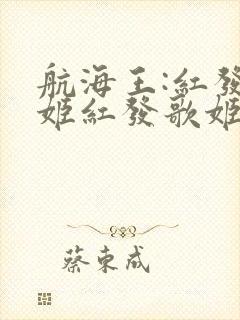 航海王:紅發
姬紅發歌姬
蔡東成